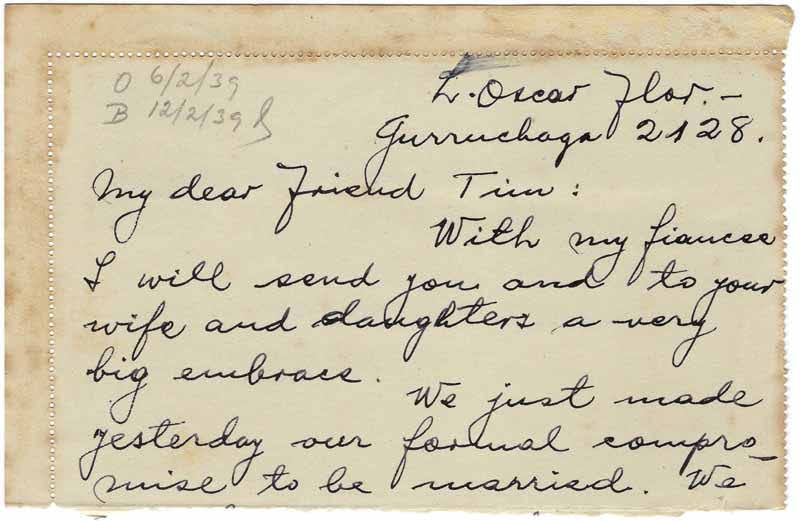 O 6/2/39
B 12/2/39
L. Oscar Flor.-
Gurruchaga 2128.
My dear friend Tim:
With my fiancee
I will send you and to your
wife and daughters a very
big embrace.
We just made
yesterday our formal compro-
mise to be married. We